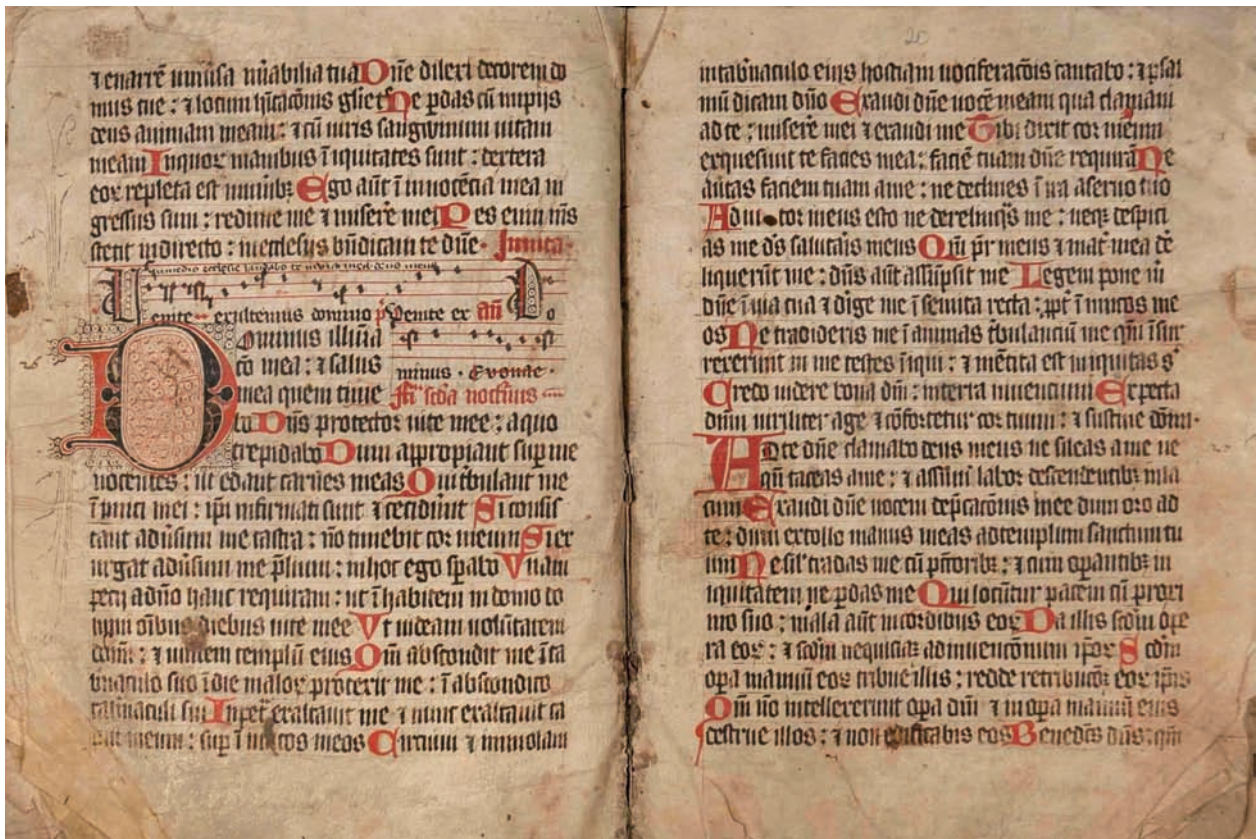 ⁊ enarrē uniūsa mʼabilia tua Dn̄e dilexi decorem do
mus tue : ⁊ locum hītacōnis glīe tʼ Ne pdas cū impijs
deus animam meam : ⁊ cū uiris sangwinum uitam
meam In quoꝝ manibus īiquitates sunt : dextera
eoꝝ repleta est munʼibꝫ Ego aūt ī innocēcia mea in
gressus sum : redime me ⁊ miserē mei Pes enim mʼs
stetit in directo : in ecclesijs bn̄dicam te dn̄e · Inuita
In medio ecclesie laudabo te deus meus
enite exultemus domino pˢ Venite ex añ Do
ominus illūia
cō mea : ⁊ salus
minus · Evouae ·
mea quem time
Fr̄ scḋa nocturnis
bo Dn̄s protector uite mee : a quo
trepidabo Dum appropiant supʼ me
nocentes : ut edant carnes meas Qui tʼbulant me
īimici mei : ipī infirmati sunt ⁊ cecidʼunt Si consis
tant aduʼsum me castra : nō timebit cor meum Si ex
urgat aduʼsum me pʼlium : in hoc ego spʼabo Vnam
pecij a dn̄o hanc requiram : ut īhabitem in domo do
mini oībus diebus uite mee Vt uideam uolūtatem
dom̄ : ⁊ uisitem templū eius Qm̄ abscondit me ī ta
bʼnaculo suo ī die maloꝝ protexit me : ī abscondito
tabʼnaculi sui In petʼ exaltauit me ⁊ nunc exaltauit ca
put meum : supʼ īimicos meos Circuiui ⁊ immolaui
20
in tabʼnaculo eius hostiam uociferacōis cantabo : ⁊ psal
mū dicam dn̄o Exaudi dn̄e uocē meam qua clamaui
ad te : miserē mei ⁊ exaudi me Tibi dixit cor meum
exquesiuit te facies mea : faciē tuam dn̄e requirā Ne
auʼtas faciem tuam a me : ne declines ī ira a seruo tuo
Adiutor meus esto ne derelinqʼs me : neqꝫ despici
as me dʼs salutaris meus Qm̄ pr̄ meus ⁊ matʼ mea dē
liquerūt me : dn̄s aūt assūpsit me Legem pone m̄
dn̄e ī uia tua ⁊ dʼige me ī semita recta : ppt̄ īimicos me
os Ne tradideris me ī animas tʼbulanciū me qm̄ īsur
rexerunt in me testes īiqui : ⁊ mētita est iniquitas sʼ
Credo uidere bona dn̄i : in terra uiuencium Expecta
dn̄m uiriliter age ⁊ cōfortetur cor tuum : ⁊ sustine dom̄ ·
Ad te dn̄e clamabo deus meus ne sileas a me ne
qn̄ taceas a me : ⁊ assimʼlabor descendentibꝫ in la
cum Exaudi dn̄e uocem depʼcacōnis mee dum oro ad
te : dum extollo manus meas ad templum sanctum tu
um Ne sīlʼ tradas me cū pctōribꝫ : ⁊ cum opʼantibꝫ in
iquitatem ne pdas me Qui locūtur pacem cū proxi
mo suo : mala aūt in cordibus eoꝝ Da illis scḋm opʼe
ra eoꝝ : ⁊ scḋm nequiciā adinuencōnum ipʼoꝝ Scḋm
opʼa manuū eoꝝ tribue illis : redde retribucōꝫ eoꝝ ipʼis
Qm̄ nō intellexerunt opʼa dn̄i ⁊ in opʼa manuū eius
destrue illos : ⁊ non edificabis eos Benedcʼs dn̄s : qm̄